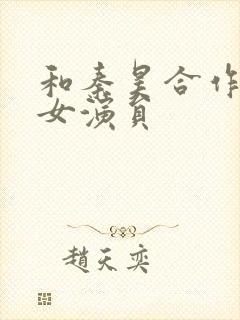 和秦昊合作
女演員
趙天奕